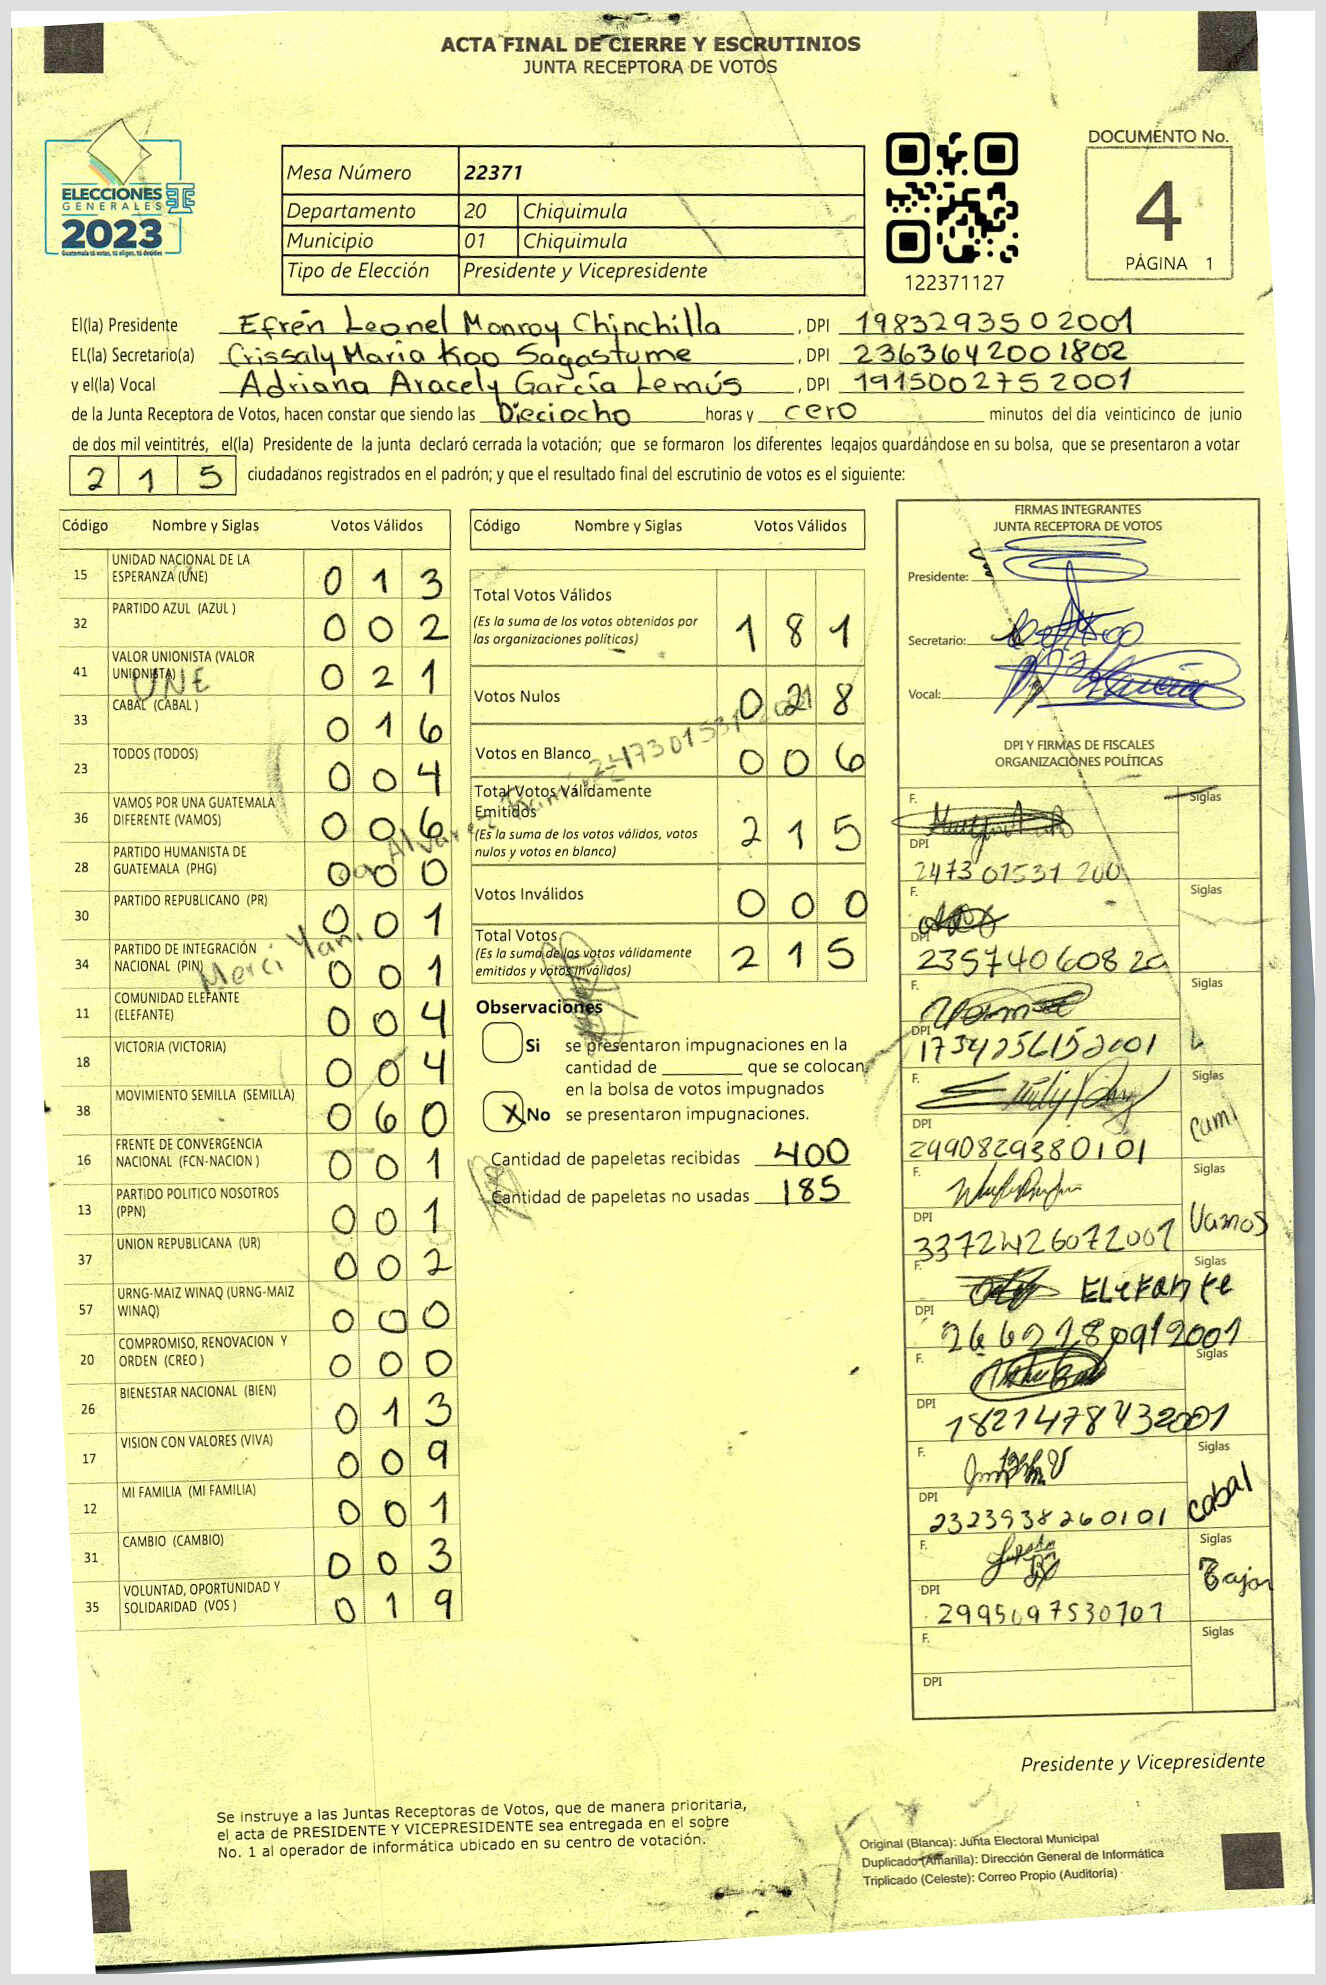 ACTA FINAL DE CIERRE Y ESCRUTINIOS
JUNTA RECEPTORA DE VOTOS
ELECCIONES
GENERALES
2023
Guatemala tú votas, tú eliges, tú decides
Mesa Número 22371
Departamento 20 Chiquimula
Municipio 01 Chiquimula
Tipo de Elección Presidente y Vicepresidente
122371127
DOCUMENTO No.
4
PÁGINA 1
El(la) Presidente Efrén Leonel Monroy Chinchilla, DPI 1983293502001
EL(la) Secretario(a) Crissaly Maria Koo Sagastume, DPI 2363642001802
y el(la) Vocal Adriana Aracely García Lemús, DPI 1915002752001
de la Junta Receptora de Votos, hacen constar que siendo las Dieciocho horas y cero minutos del día veinticinco de junio
de dos mil veintitrés, el(la) Presidente de la junta declaró cerrada la votación; que se formaron los diferentes legajos guardándose en su bolsa, que se presentaron a votar
215 ciudadanos registrados en el padrón; y que el resultado final del escrutinio de votos es el siguiente:
Código Nombre y Siglas Votos Válidos
15 UNIDAD NACIONAL DE LA ESPERANZA (UNE) 013
32 PARTIDO AZUL (AZUL ) 002
41 VALOR UNIONISTA (VALOR UNIONISTA) 021
UNE
33 CABAL (CABAL ) 016
23 TODOS (TODOS) 004
36 VAMOS POR UNA GUATEMALA DIFERENTE (VAMOS) 006
28 PARTIDO HUMANISTA DE GUATEMALA (PHG) 000
30 PARTIDO REPUBLICANO (PR) 001
34 PARTIDO DE INTEGRACIÓN NACIONAL (PIN) 001
11 COMUNIDAD ELEFANTE (ELEFANTE) 004
18 VICTORIA (VICTORIA) 004
38 MOVIMIENTO SEMILLA (SEMILLA) 060
16 FRENTE DE CONVERGENCIA NACIONAL (FCN-NACION ) 001
13 PARTIDO POLITICO NOSOTROS (PPN) 001
37 UNION REPUBLICANA (UR) 002
57 URNG-MAIZ WINAQ (URNG-MAIZ WINAQ) 000
20 COMPROMISO, RENOVACION Y ORDEN (CREO ) 000
26 BIENESTAR NACIONAL (BIEN) 013
17 VISION CON VALORES (VIVA) 009
12 MI FAMILIA (MI FAMILIA) 001
31 CAMBIO (CAMBIO) 003
35 VOLUNTAD, OPORTUNIDAD Y SOLIDARIDAD (VOS ) 019
Código Nombre y Siglas Votos Válidos
Total Votos Válidos 181
(Es la suma de los votos obtenidos por las organizaciones políticas)
Votos Nulos 028
Votos en Blanco 006
Total Votos Válidamente Emitidos 215
(Es la suma de los votos válidos, votos nulos y votos en blanco)
Votos Inválidos 000
Total Votos 215
(Es la suma de los votos válidamente emitidos y votos inválidos)
Observaciones
Si se presentaron impugnaciones en la
cantidad de ________ que se colocan
en la bolsa de votos impugnados
X No se presentaron impugnaciones.
Cantidad de papeletas recibidas 400
Cantidad de papeletas no usadas 185
FIRMAS INTEGRANTES
JUNTA RECEPTORA DE VOTOS
Presidente:
Secretario:
Vocal:
DPI Y FIRMAS DE FISCALES
ORGANIZACIONES POLÍTICAS
F. Siglas
DPI
2473 01531 200
F. Siglas
DPI
F. Siglas
DPI
F. Siglas
DPI
2490829380101
F. Siglas
DPI Vamos
3372426072001
F. Siglas
Elefante
DPI
F. Siglas
DPI
F. Siglas
DPI cabal
2323938260101
F. Siglas
DPI
2995097530101
F. Siglas
DPI
Presidente y Vicepresidente
Se instruye a las Juntas Receptoras de Votos, que de manera prioritaria,
el acta de PRESIDENTE Y VICEPRESIDENTE sea entregada en el sobre
No. 1 al operador de informática ubicado en su centro de votación.
Original (Blanca): Junta Electoral Municipal
Duplicado (Amarilla): Dirección General de Informática
Triplicado (Celeste): Correo Propio (Auditoría)